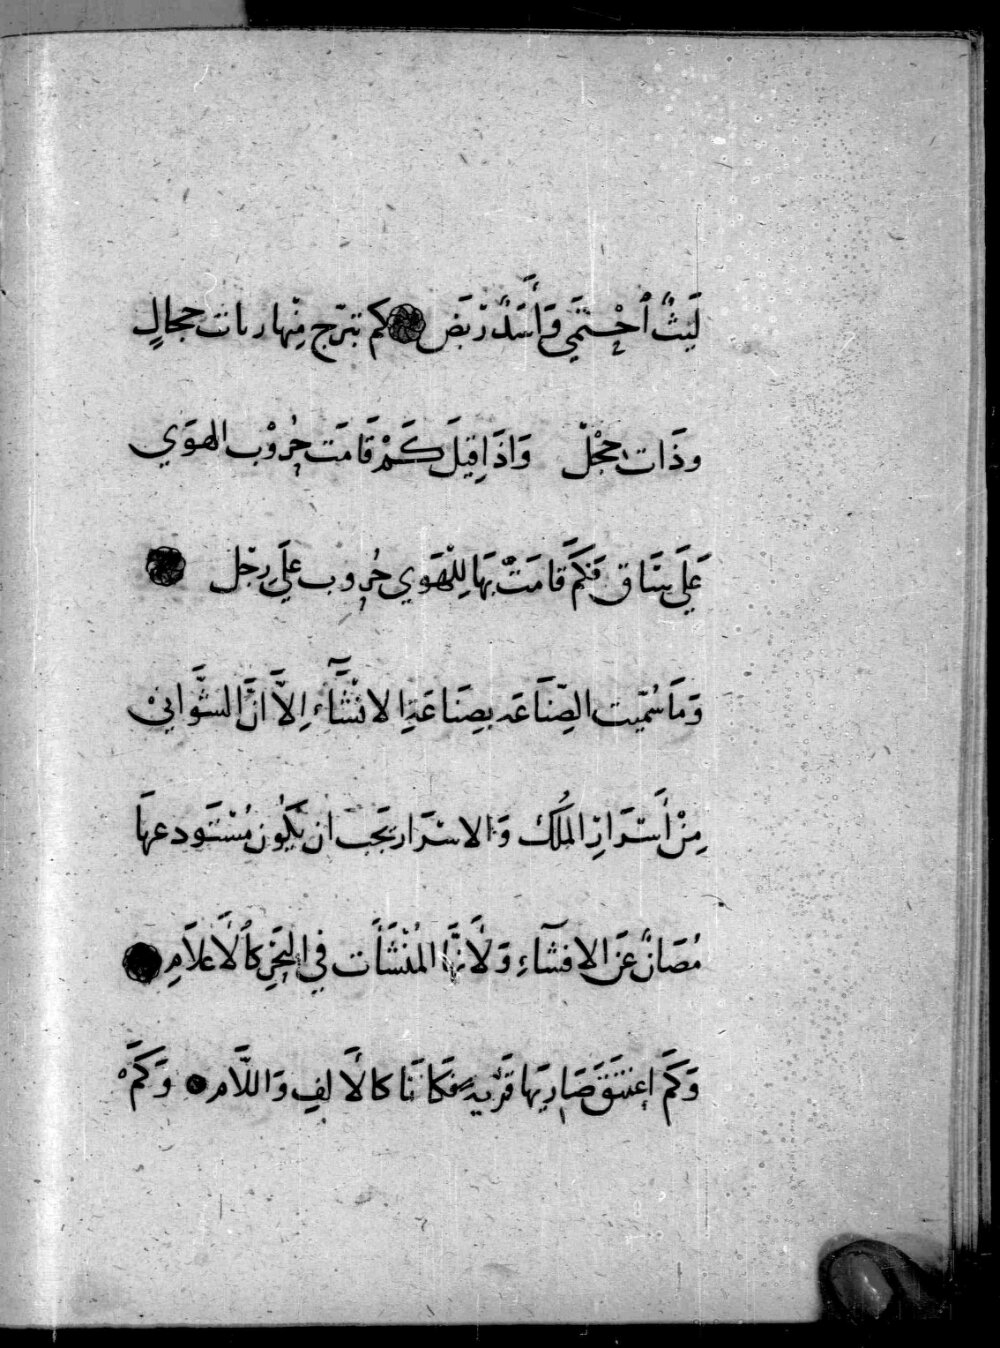 لَيْثٌ ٱحْتَمَى وَأَسَدٌ رَبَضَ كم تبرّج مِنْها ربات حجالٍ
وذَات حِجْلْ وَاذَا قِيلَ كَمْ قَامَت حُروْب الهوَي
عَلَى سَاق فَكَمْ قامَتْ بِهَا لِلْهَوَي حُروب علَي رِجْل
وَمَا سُمّيت الصّنَاعَه بصِنَاعَةِ الانْشَآءِ اِلاَّ انَّ الشَّوَانيْ
مِنْ أَسْرَارِ المُلْك وَالاسْرَار يَجَب ان يَكُون مُسْتَودعهَا
مُصَانٌ عَن الافشآءِ وَلأَنَّهَا المُنْشَأَت في البَحْرِ كاْلأَعْلاَمِ
وَكَم اعتَنَقَ صَارِيهَا قَرْيه فكَانَا كالأَلِفِ وَاللَّام وَكَمْ